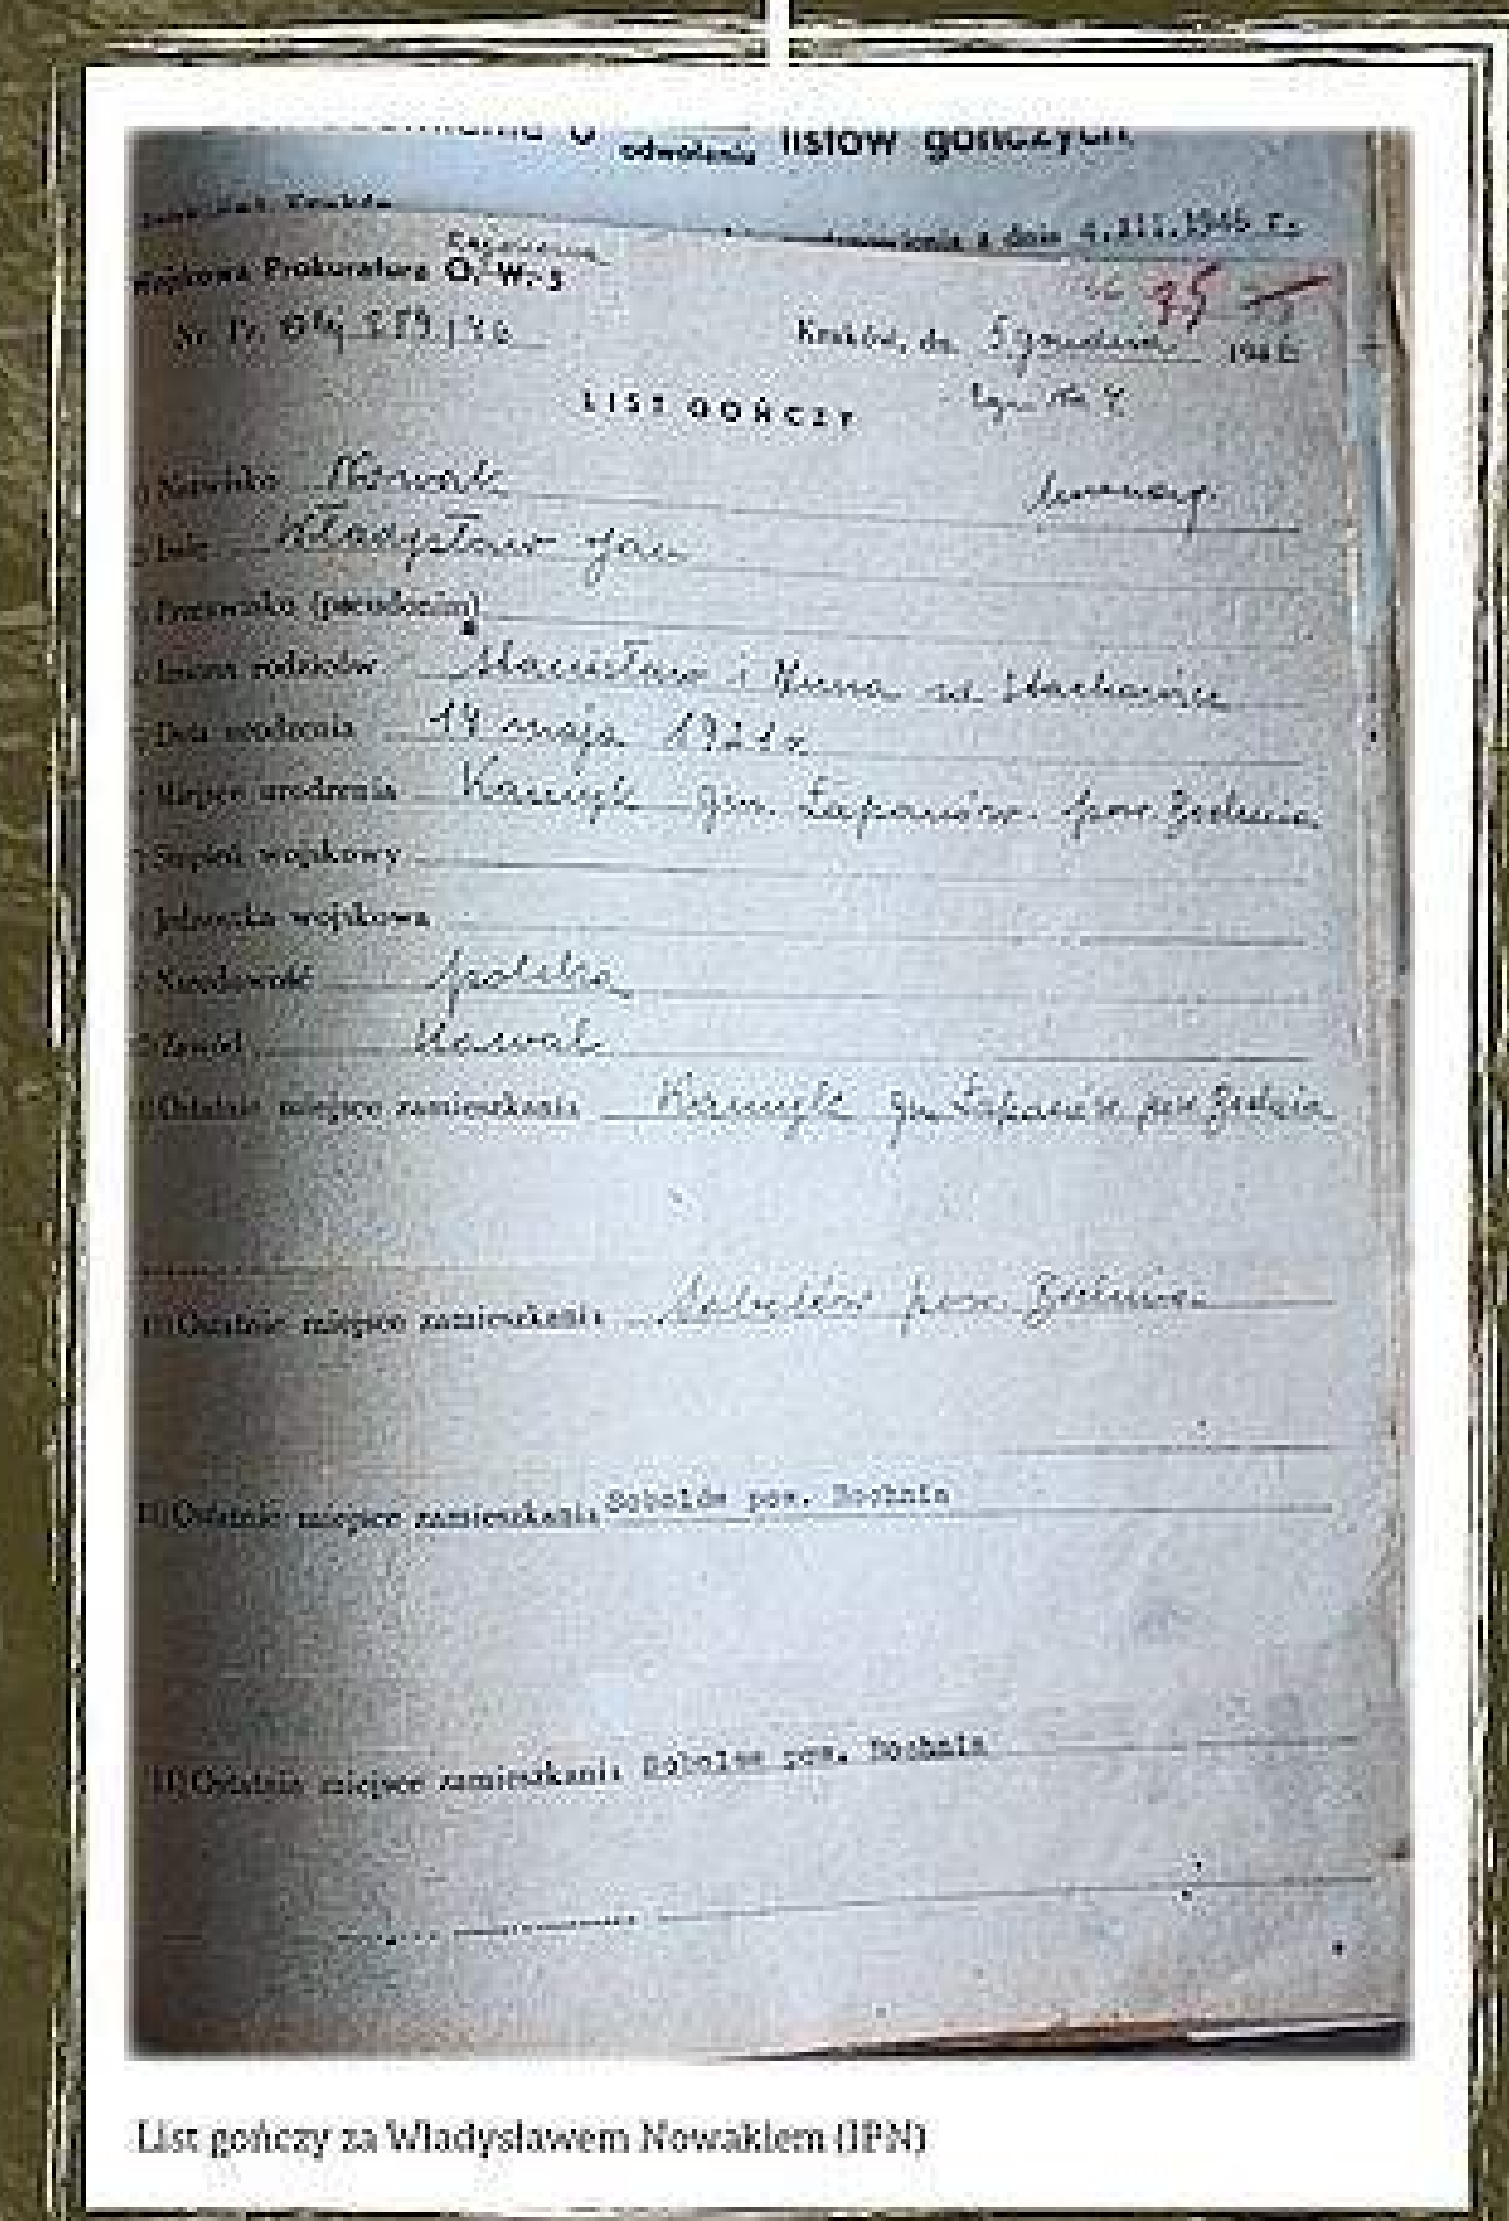 odwołaniu listów gończych
z dnia 4.XII.1946 r.
Wojskowa Prokuratura O. W.
Kraków, dn. 5 grudnia 1946
LIST GOŃCZY
Nazwisko Nowak
Imię Władysław Jan
Przezwisko (pseudonim)
Imiona rodziców Stanisław i Anna
Data urodzenia 14 maja 1921 r.
Miejsce urodzenia Kamyk gm. Łapanów pow. Bochnia
Stopień wojskowy
Jednostka wojskowa
Narodowość polska
Zawód
Ostatnie miejsce zamieszkania Kamyk gm. Łapanów pow. Bochnia
Ostatnie miejsce zamieszkania Sobolów pow. Bochnia
Ostatnie miejsce zamieszkania Sobolów pow. Bochnia
Ostatnie miejsce zamieszkania Sobolów pow. Bochnia
List gończy za Władysławem Nowakiem (IPN)